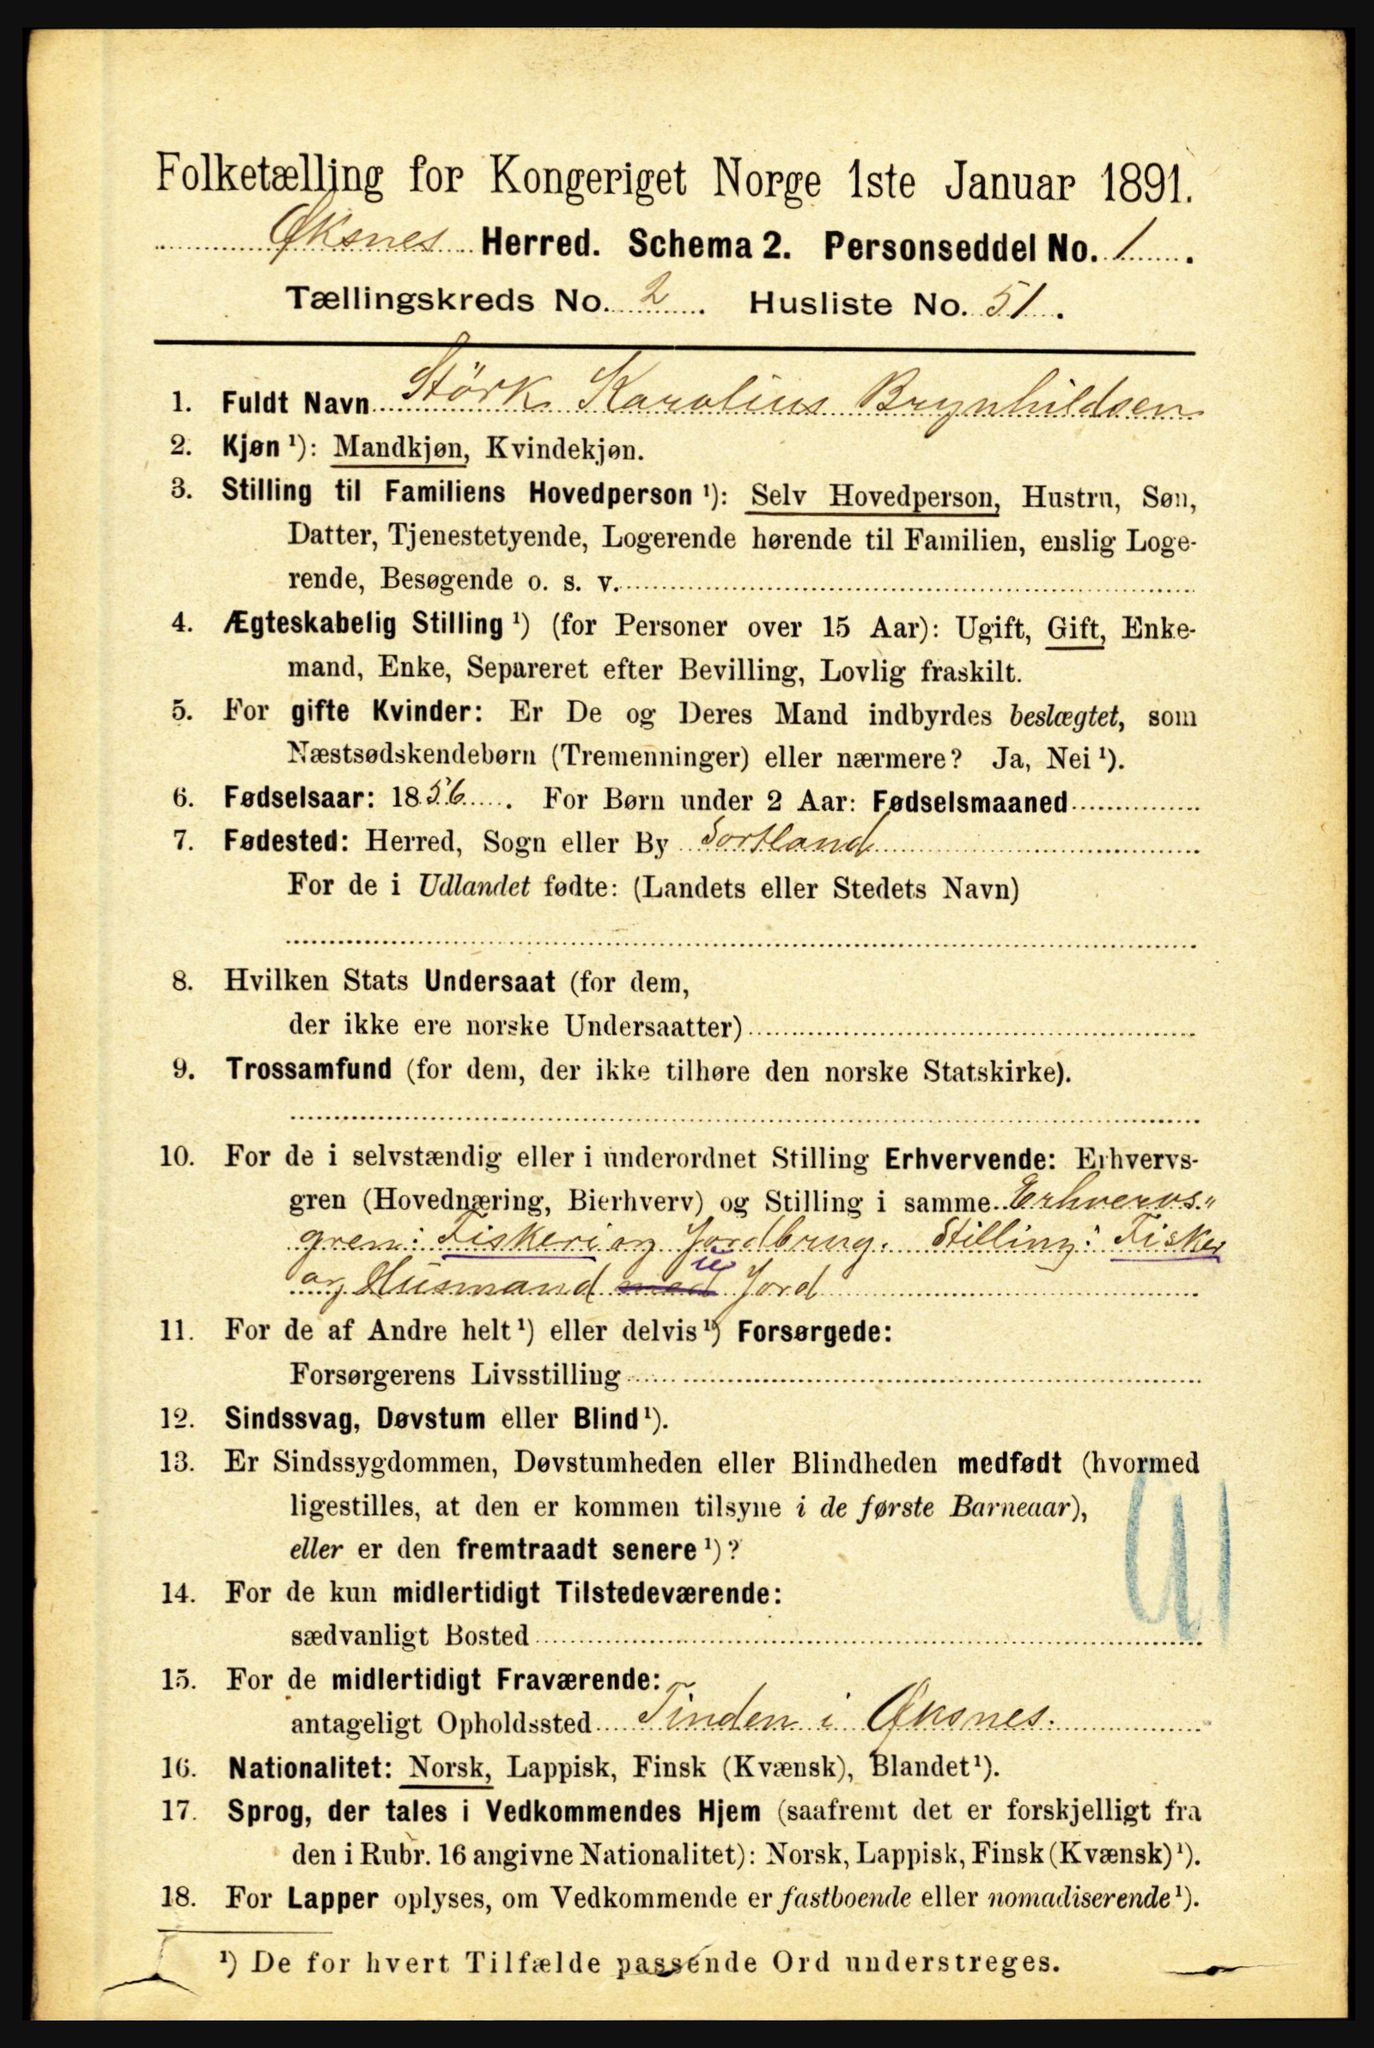 Folketælling for Kongeriget Norge 1ste Januar 1891.
Øksnes Herred. Schema 2. Personseddel No. 1.
Tællingskreds No. 2. Husliste No. 51.
1. Fuldt Navn Störk Karolius Brynhildsen
2. Kjøn ¹): Mandkjøn, Kvindekjøn.
3. Stilling til Familiens Hovedperson ¹): Selv Hovedperson, Hustru, Søn,
Datter, Tjenestetyende, Logerende hørende til Familien, enslig Loge-
rende, Besøgende o. s. v.
4. Ægteskabelig Stilling ¹) (for Personer over 15 Aar): Ugift, Gift, Enke-
mand, Enke, Separeret efter Bevilling, Lovlig fraskilt.
5. For gifte Kvinder: Er De og Deres Mand indbyrdes beslægtet, som
Næstsødskendebørn (Tremenninger) eller nærmere? Ja, Nei ¹).
6. Fødselsaar: 1856. For Børn under 2 Aar: Fødselsmaaned
7. Fødested: Herred, Sogn eller By Sortland
For de i Udlandet fødte: (Landets eller Stedets Navn)
8. Hvilken Stats Undersaat (for dem,
der ikke ere norske Undersaatter)
9. Trossamfund (for dem, der ikke tilhøre den norske Statskirke).
10. For de i selvstændig eller i underordnet Stilling Erhvervende: Erhvervs-
gren (Hovednæring, Bierhverv) og Stilling i samme Erhvervs„
gren: Fiskeri og Jordbrug. Stilling: Fisker
og Husmand med Jord
11. For de af Andre helt ¹) eller delvis ¹) Forsørgede:
Forsørgerens Livsstilling
12. Sindssvag, Døvstum eller Blind ¹).
13. Er Sindssygdommen, Døvstumheden eller Blindheden medfødt (hvormed
ligestilles, at den er kommen tilsyne i de første Barneaar),
eller er den fremtraadt senere ¹)?
14. For de kun midlertidigt Tilstedeværende:
sædvanligt Bosted
15. For de midlertidigt Fraværende:
antageligt Opholdssted Tinden i Øksnes.
16. Nationalitet: Norsk, Lappisk, Finsk (Kvænsk), Blandet ¹).
17. Sprog, der tales i Vedkommendes Hjem (saafremt det er forskjelligt fra
den i Rubr. 16 angivne Nationalitet): Norsk, Lappisk, Finsk (Kvænsk) ¹).
18. For Lapper oplyses, om Vedkommende er fastboende eller nomadiserende ¹).
¹) De for hvert Tilfælde passende Ord understreges.